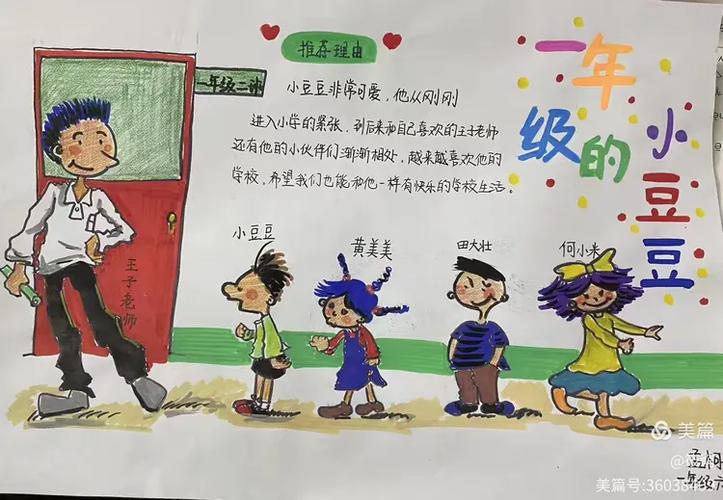 推荐理由
一年级二班
小豆豆非常可爱，他从刚刚
进入小学的紧张，到后来和自己喜欢的王子老师
还有他的小伙伴们渐渐相处，越来越喜欢他的
学校，希望我们也能和他一样有快乐的学校生活。
一年级的
小豆豆
王子老师
小豆豆
黄美美
田大壮
何小米
美篇
美篇号:36038
一年级